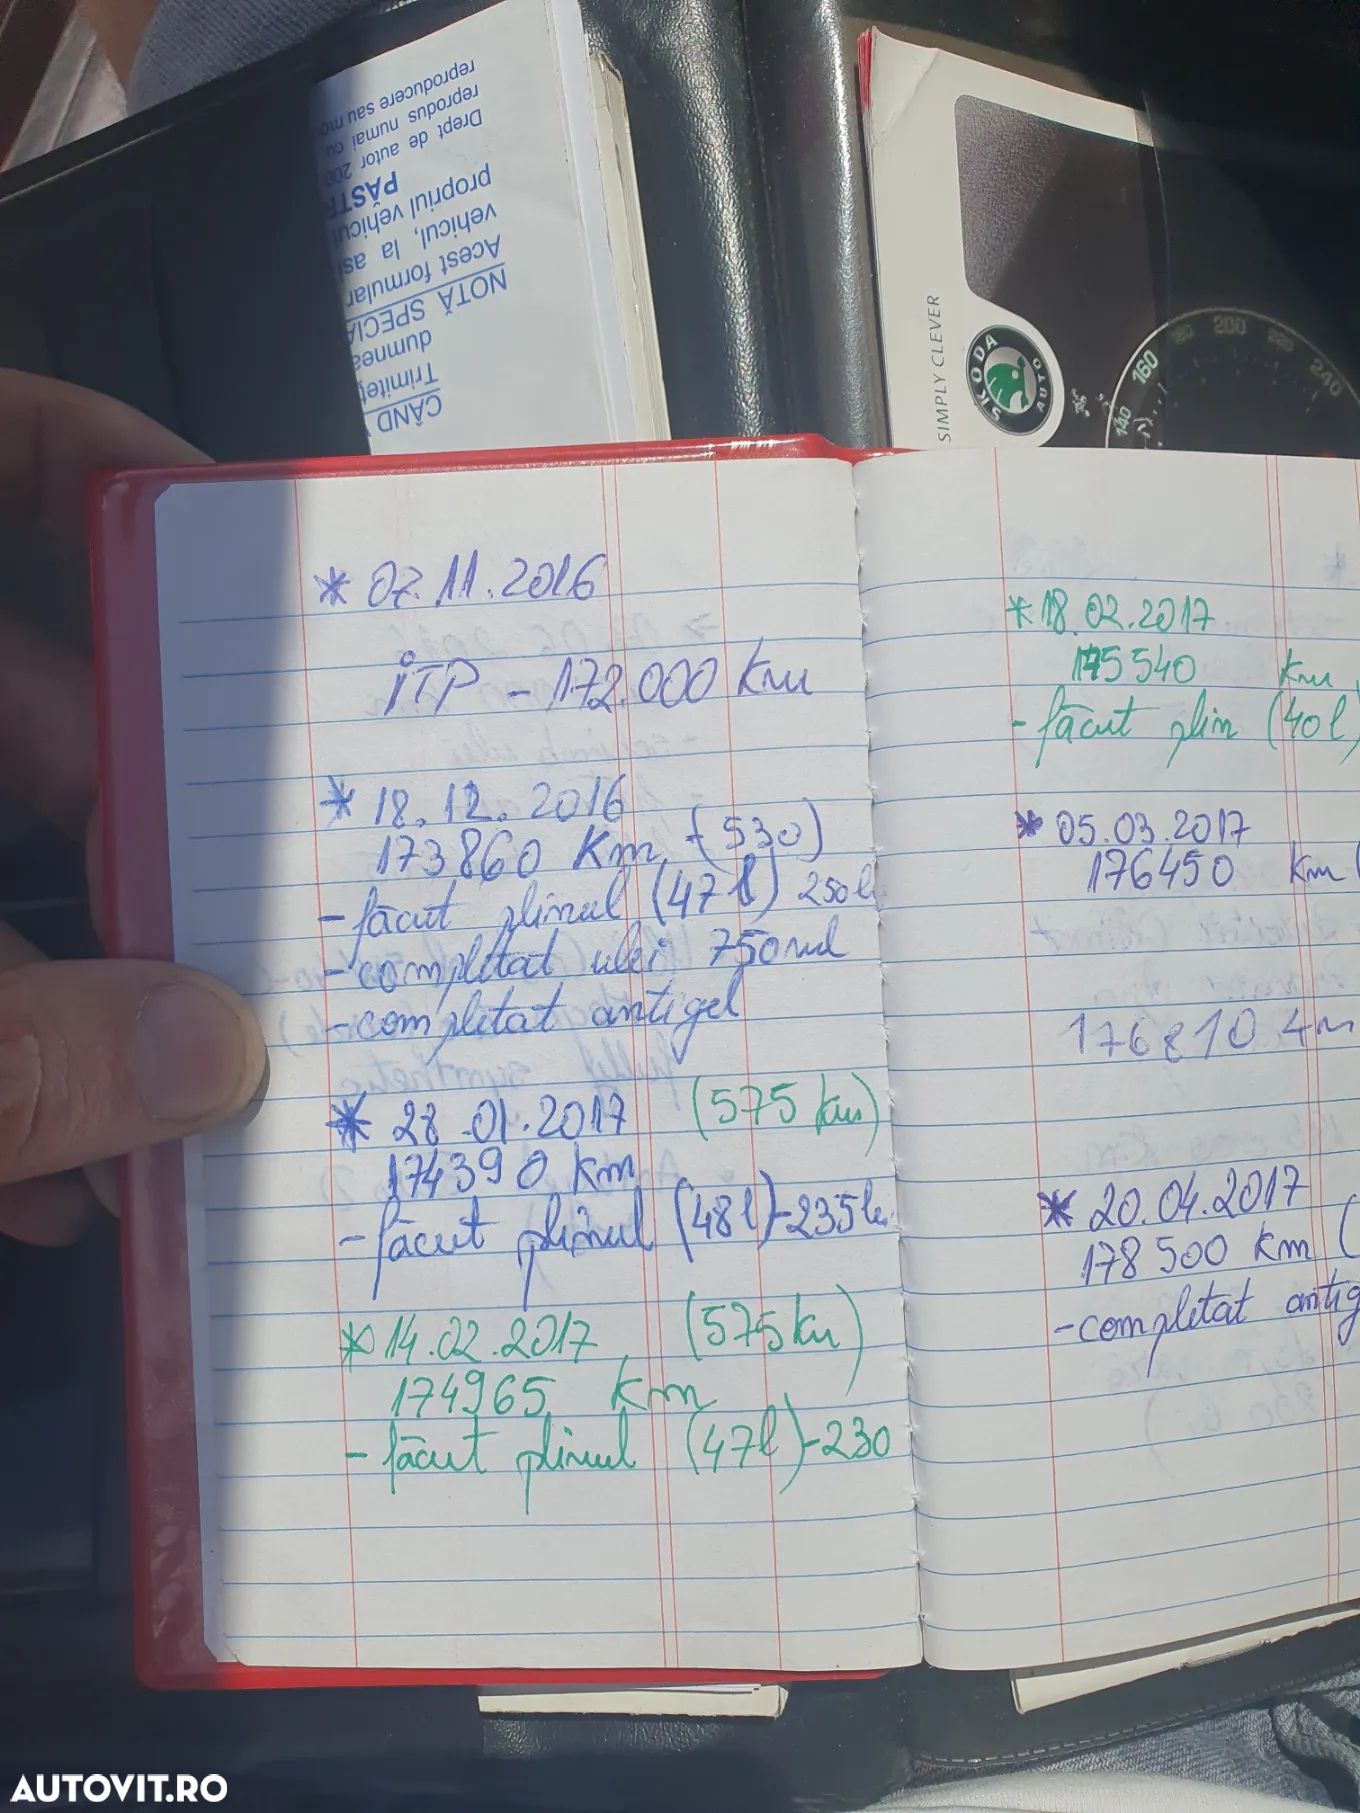 reproducere sau mo
reprodus numai cu
Drept de autor 200
PĂSTR
propriul vehicul
vehicul, la asi
Acest formular
NOTĂ SPECIA
dumnea
Trimiteţ
CÂND
SIMPLY CLEVER
SKODA
AUTO
140
160
180
200
220
240
* 07.11.2016
ITP - 172.000 Km
* 18.12.2016
173860 Km (530)
- făcut plinul (47 l) 250 le
- completat ulei 750 ml
- completat antigel
* 28.01.2017 (575 km)
174390 km
- făcut plinul (48 l) - 235 lei
* 14.02.2017 (575 km)
174965 km
- făcut plinul (47 l) - 230
* 18.02.2017
175540 km
- făcut plin (40 l)
* 05.03.2017
176450 km (
176810 km
* 20.04.2017
178500 km (
- completat antig
AUTOVIT.RO